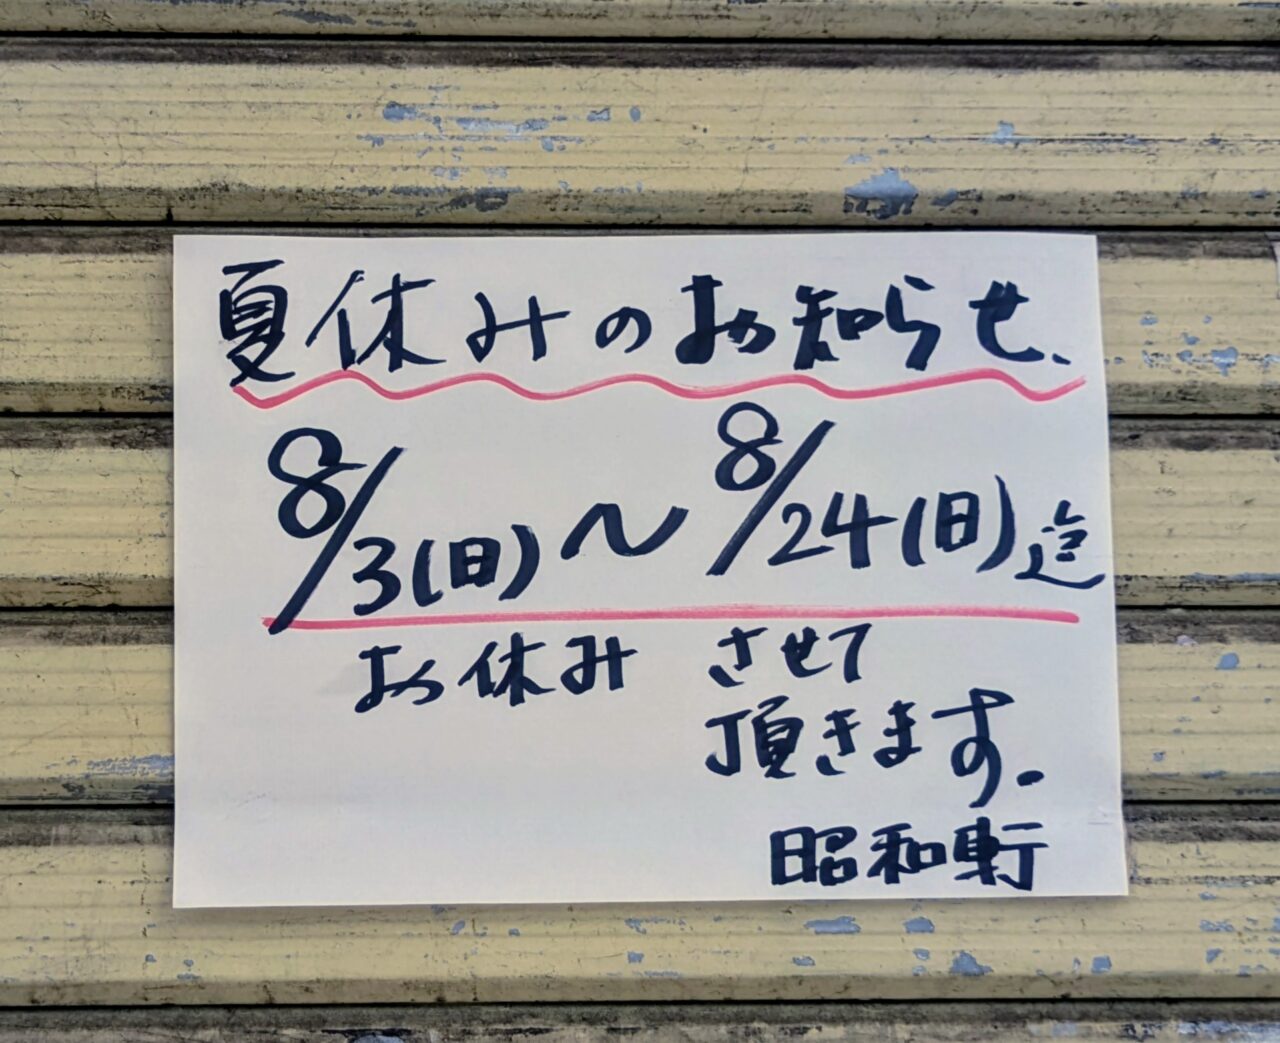 夏休みのお知らせ、
8/3(日)〜8/24(日)迄
お休みさせて
頂きます。
昭和軒